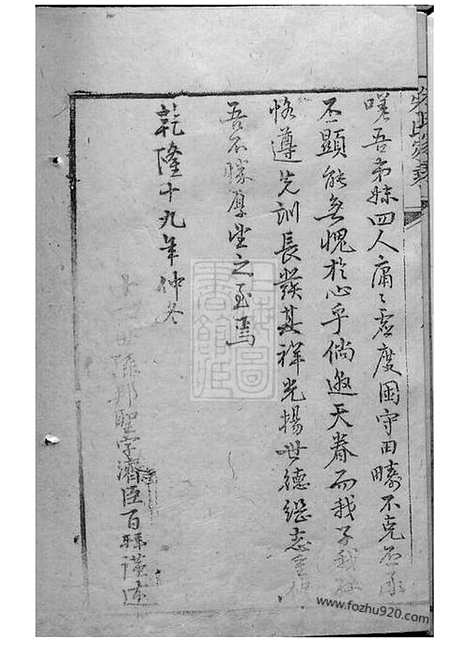 嗟吾弟妹四人庸々虚度困守田畴不克丕承
丕顯能無愧於心乎倘邀天眷而我子我
恪遵先訓長發其祥光揚世德繼志
吾不勝厚望之至焉
乾隆十九年仲冬
孫邦聖字濟臣百拜謹述
上海圖書館藏
www.fozhu920.com